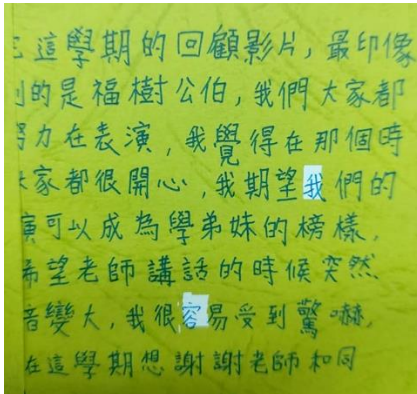 這學期的回顧影片，最印像
的是福樹公伯，我們大家都
力在表演，我覺得在那個時
家都很開心，我期望我們的
演可以成為學弟妹的榜樣，
希望老師講話的時候突然
音變大，我很容易受到驚嚇，
在這學期想謝謝老師和同